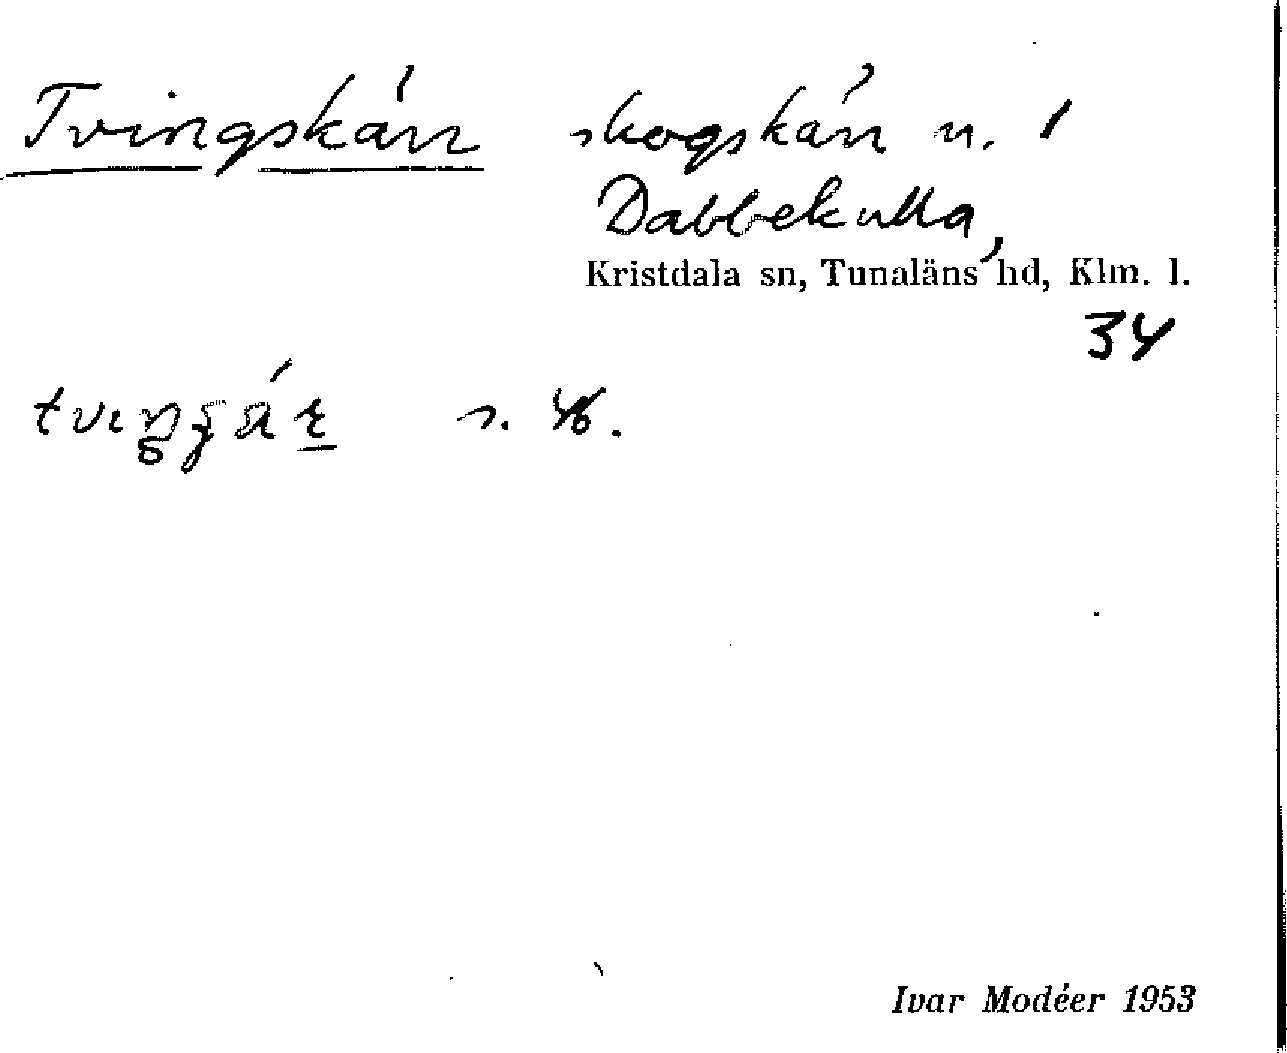 Tvingskärr skogskärr n. 1
Dabbekulla,
Kristdala sn, Tunaläns hd, Klm. l.
34
Ivar Modéer 1953